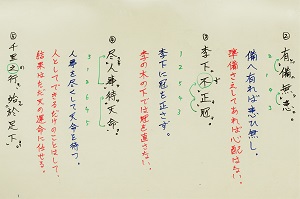 ② 有備無患
備へ有れば患ひ無し。
準備さえしてあれば心配はない。
③ 李下不正冠
李下に冠を正さず。
李の木の下では冠を直さない。
④ 尽人事待天命
人事を尽くして天命を待つ。
人としてできるだけのことはして、
結果はただ天の運命に任せる。
⑤ 千里之行、始於足下。